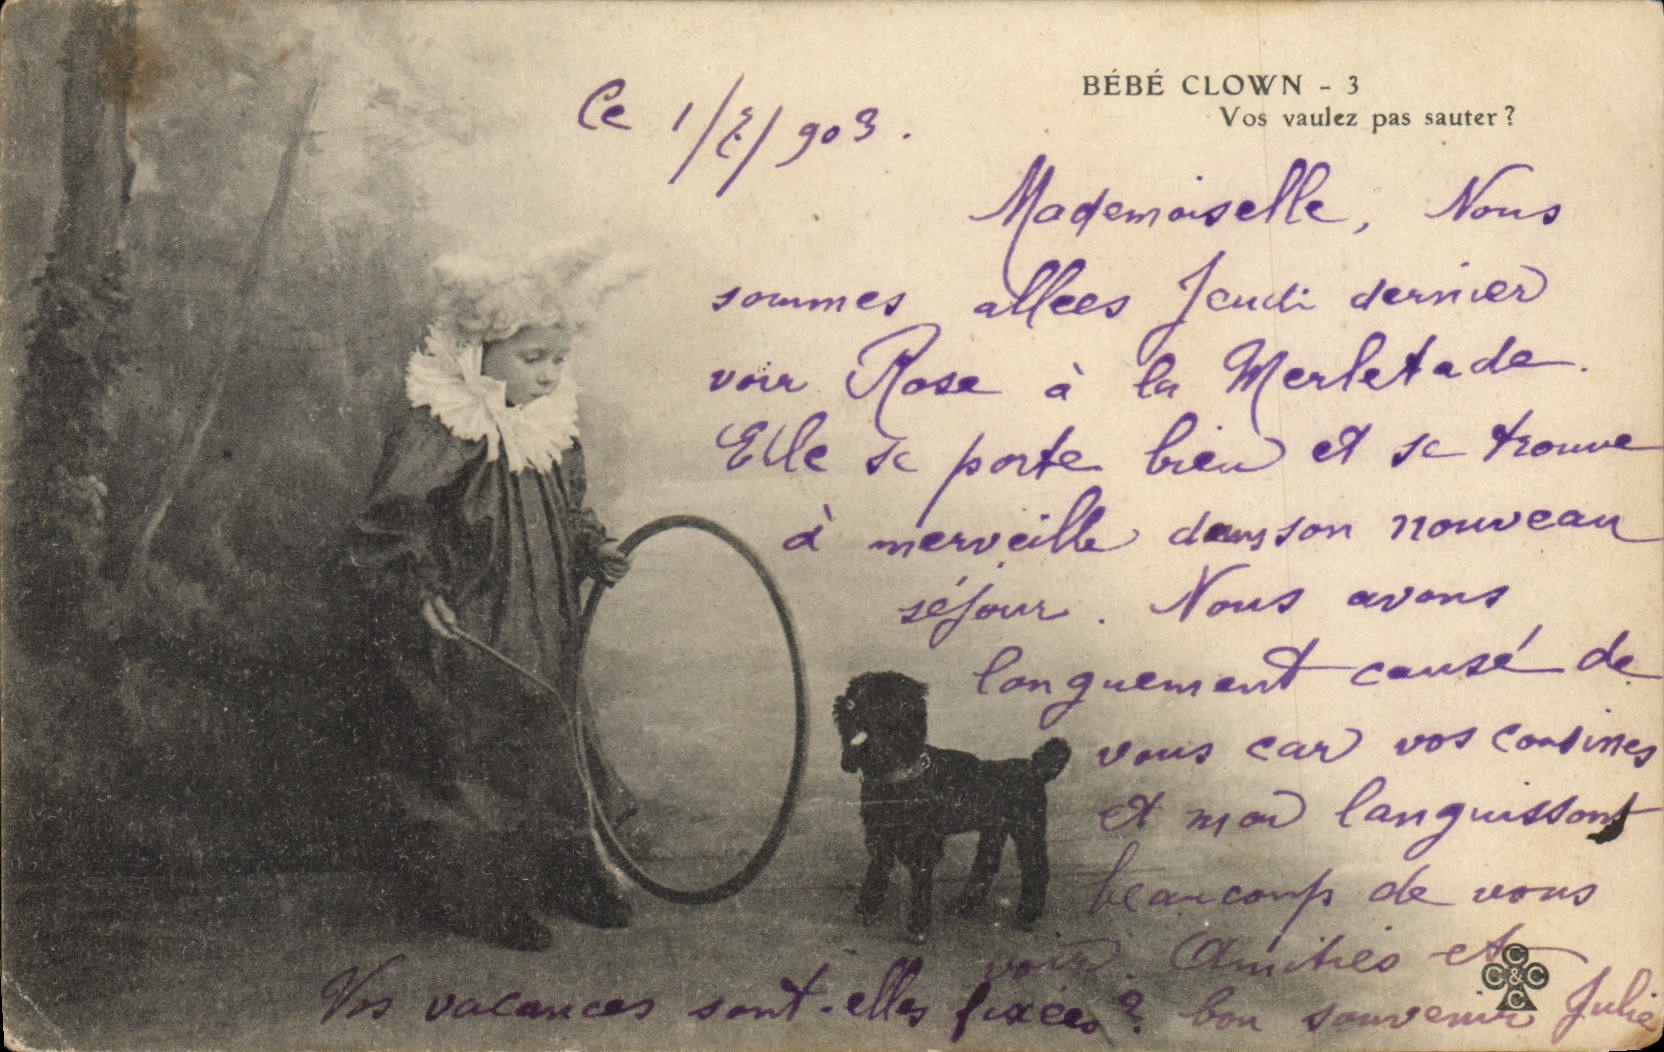 BÉBÉ CLOWN - 3
Vos vaulez pas sauter?
Ce 1/7/903.
Mademoiselle, Nous
sommes allées Jeudi dernier
voir Rose à la Merletade.
Elle se porte bien et se trouve
à merveille dans son nouveau
séjour. Nous avons
longuement causé de
vous car vos cousines
et moi languissons
beaucoup de vous
voir. Amitiés et
bon souvenir Julie
Vos vacances sont-elles fixées?
C C & C C